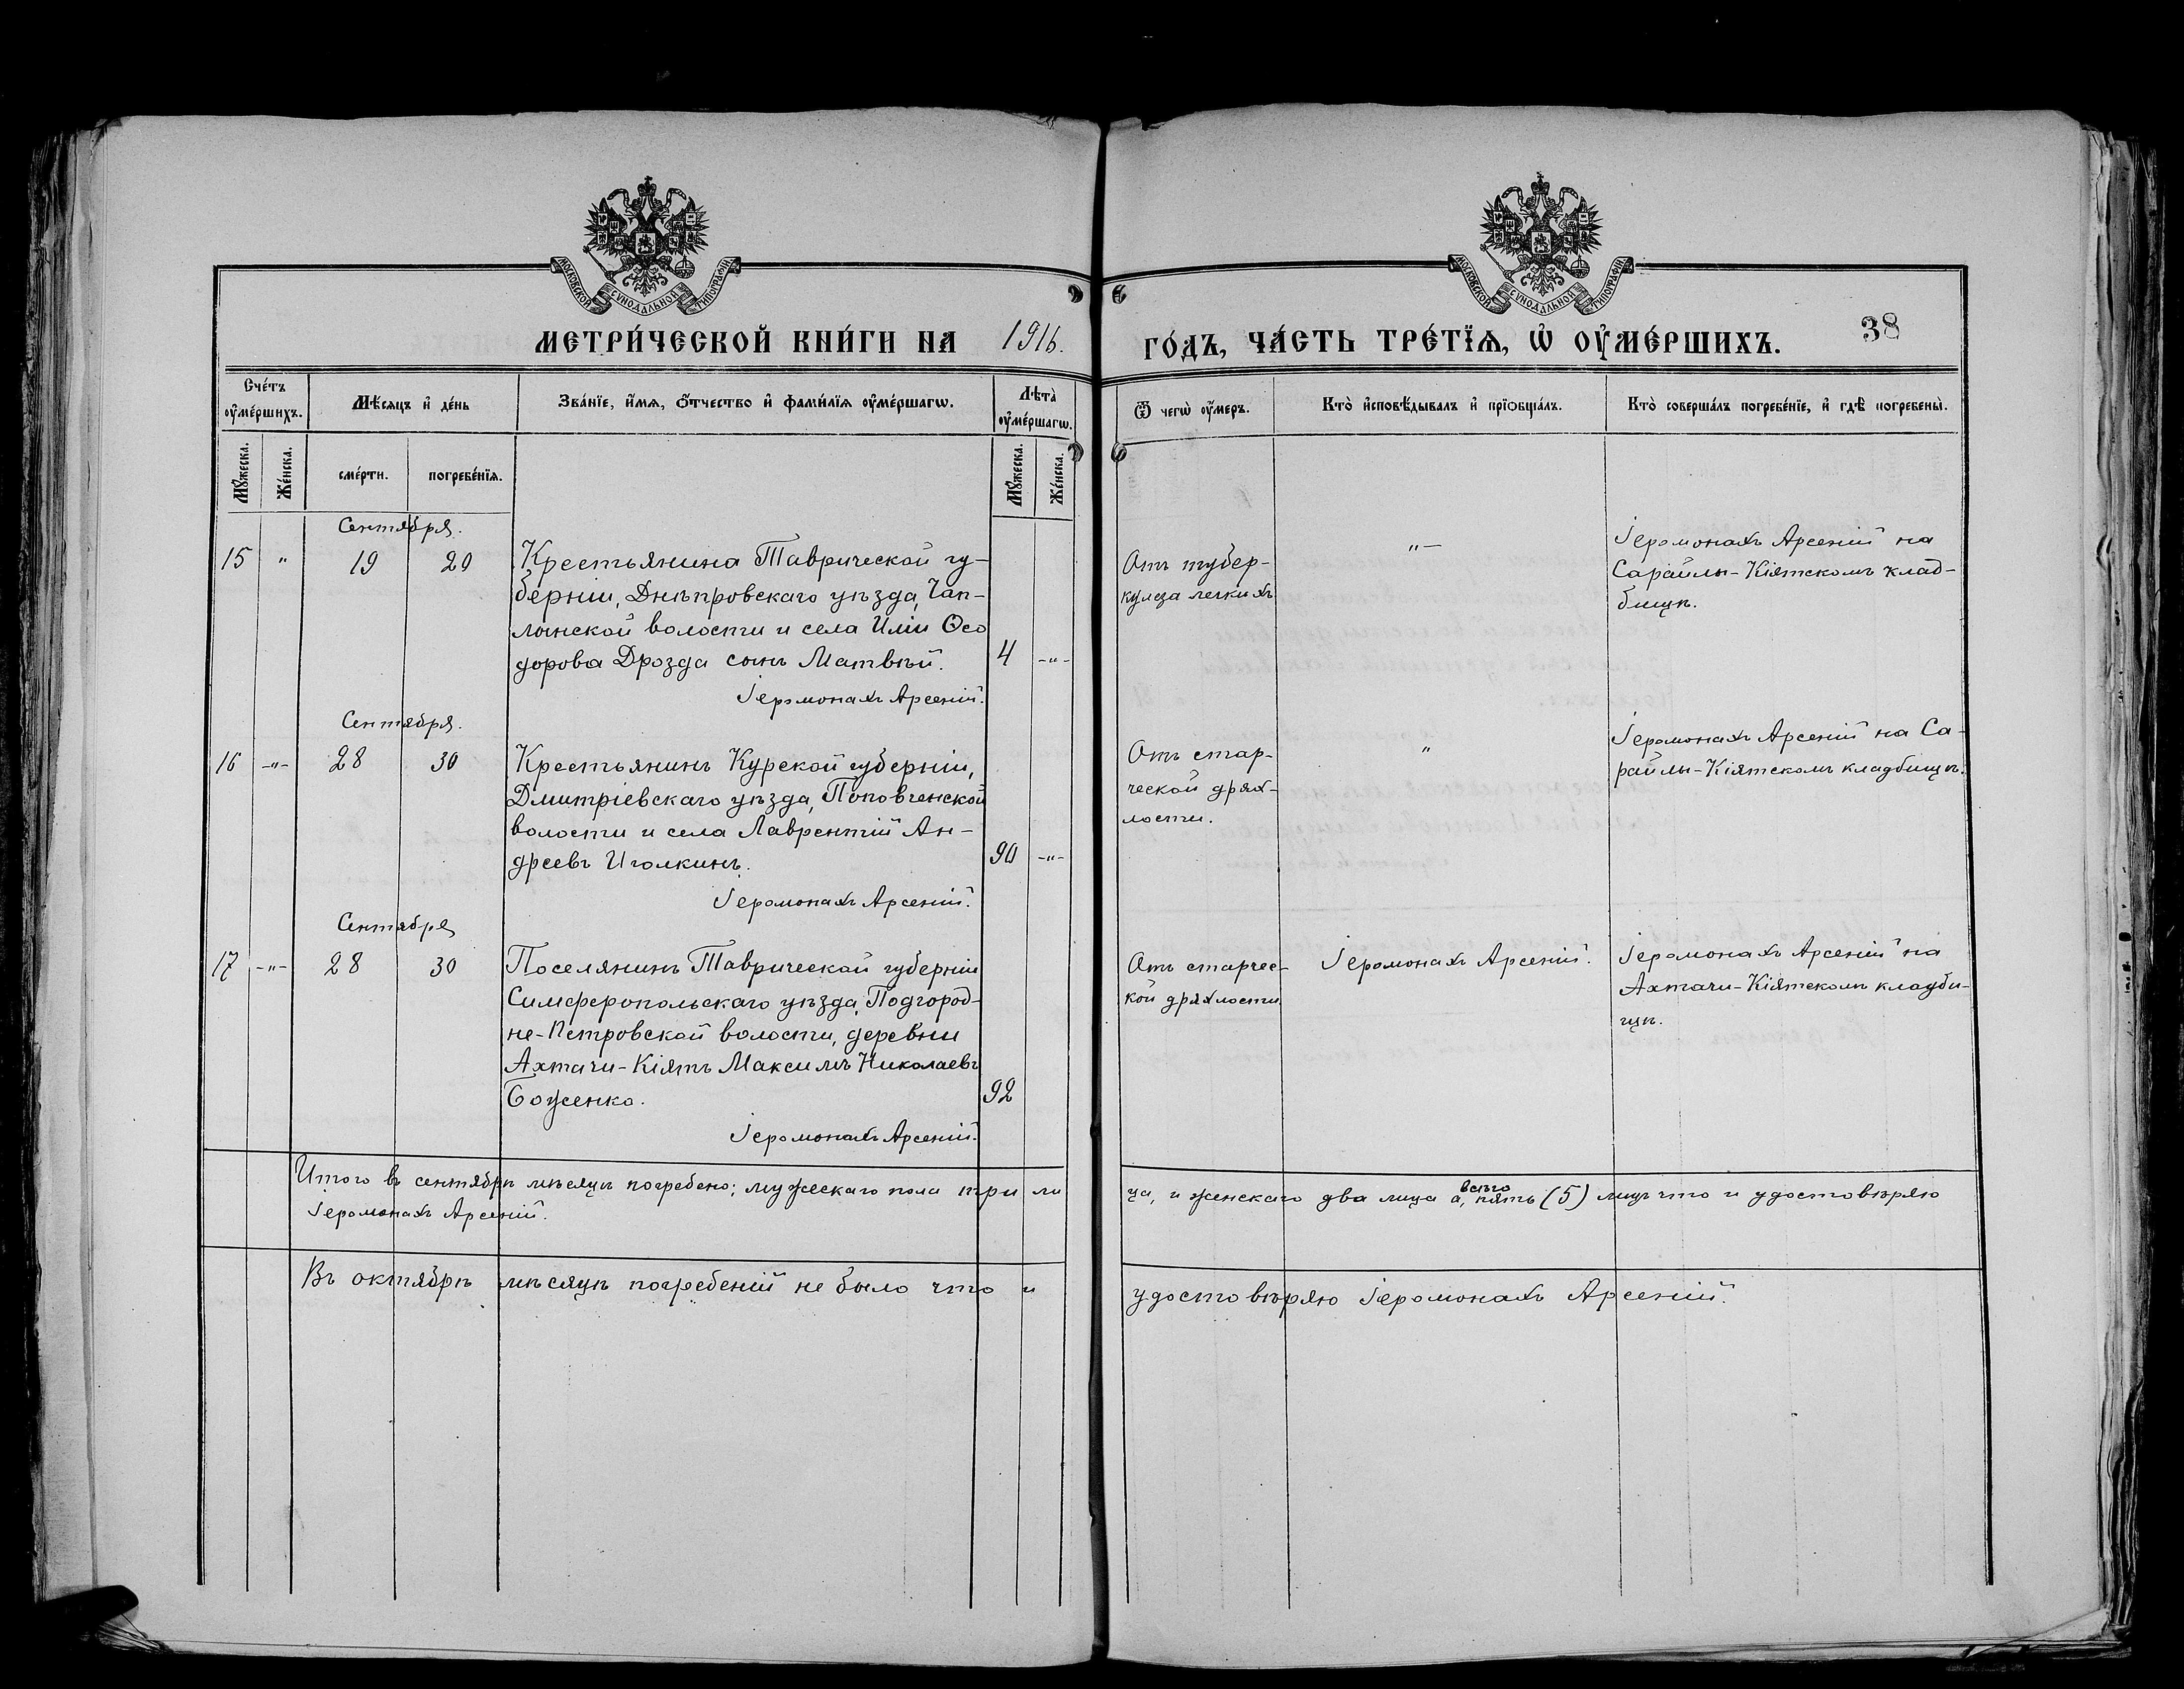 МОСКОВСКОЙ СѴНОДАЛЬНОЙ ТИПОГРАФІИ
МОСКОВСКОЙ СѴНОДАЛЬНОЙ ТИПОГРАФІИ
МЕТРИ́ЧЕСКОЙ КНИ́ГИ НА 1916. ГО́ДЪ, ЧА́СТЬ ТРЕ́ТЇѦ, Ѡ҆ ОУ҆МЕ́РШИХЪ. 38
Сче́тъ оу҆ме́ршихъ.
Мѣ́сѧцъ и҆ де́нь
Зва́нїе, и҆́мѧ, о҆́тчество и҆ фами́лїѧ оу҆ме́ршагѡ.
Лѣта̀ оу҆ме́ршагѡ.
Ѿ чегѡ̀ оу҆́меръ.
Кто̀ и҆сповѣ́дывалъ и҆ прїѻбща́лъ.
Кто̀ соверша́лъ погребе́нїе, и҆ гдѣ̀ погребены̀.
Мꙋ́жеска.
Же́нска.
сме́рти.
погребе́нїѧ.
Мꙋ́жеска.
Же́нска.
Сентября.
15 " 19 20 Крестьянина Таврической гу-
берніи, Днѣпровскаго уѣзда, Чап-
линской волости и села Иліи Ѳео
дорова Дрозда сынъ Матвѣй. 4 -"-
Іеромонахъ Арсеній.
Отъ тубер-
кулеза легкихъ
"-
Іеромонахъ Арсеній на
Сарайлы-Кіятскомъ клад-
бищѣ.
Сентября.
16 -"- 28 30 Крестьянинъ Курской губерніи,
Дмитріевскаго уѣзда, Поповченской
волости и села Лаврентій Ан-
дреевъ Иголкинъ. 90 -"-
Іеромонахъ Арсеній.
Отъ стар-
ческой дрях-
лости.
"
Іеромонахъ Арсеній на Са-
райлы-Кіятскомъ кладбищѣ.
Сентября
17 -"- 28 30 Поселянинъ Таврической губерніи
Симферопольскаго уѣзда, Подгород-
не-Петровской волости, деревни
Ахтачи-Кіятъ Максимъ Николаевъ
Боженко. 92
Іеромонахъ Арсеній.
Отъ старчес-
кой дряхлости
Іеромонахъ Арсеній.
Іеромонахъ Арсеній на
Ахтачи-Кіятскомъ кладби-
щѣ.
Итого въ сентябрѣ мѣсяцѣ погребено; мужескаго пола три ли ца, и женскаго два лица а, всѣго пять (5) лицъ что и удостовѣряю
Іеромонахъ Арсеній.
Въ октябрѣ мѣсяцѣ погребеній не было что и удостовѣряю Іеромонахъ Арсеній.